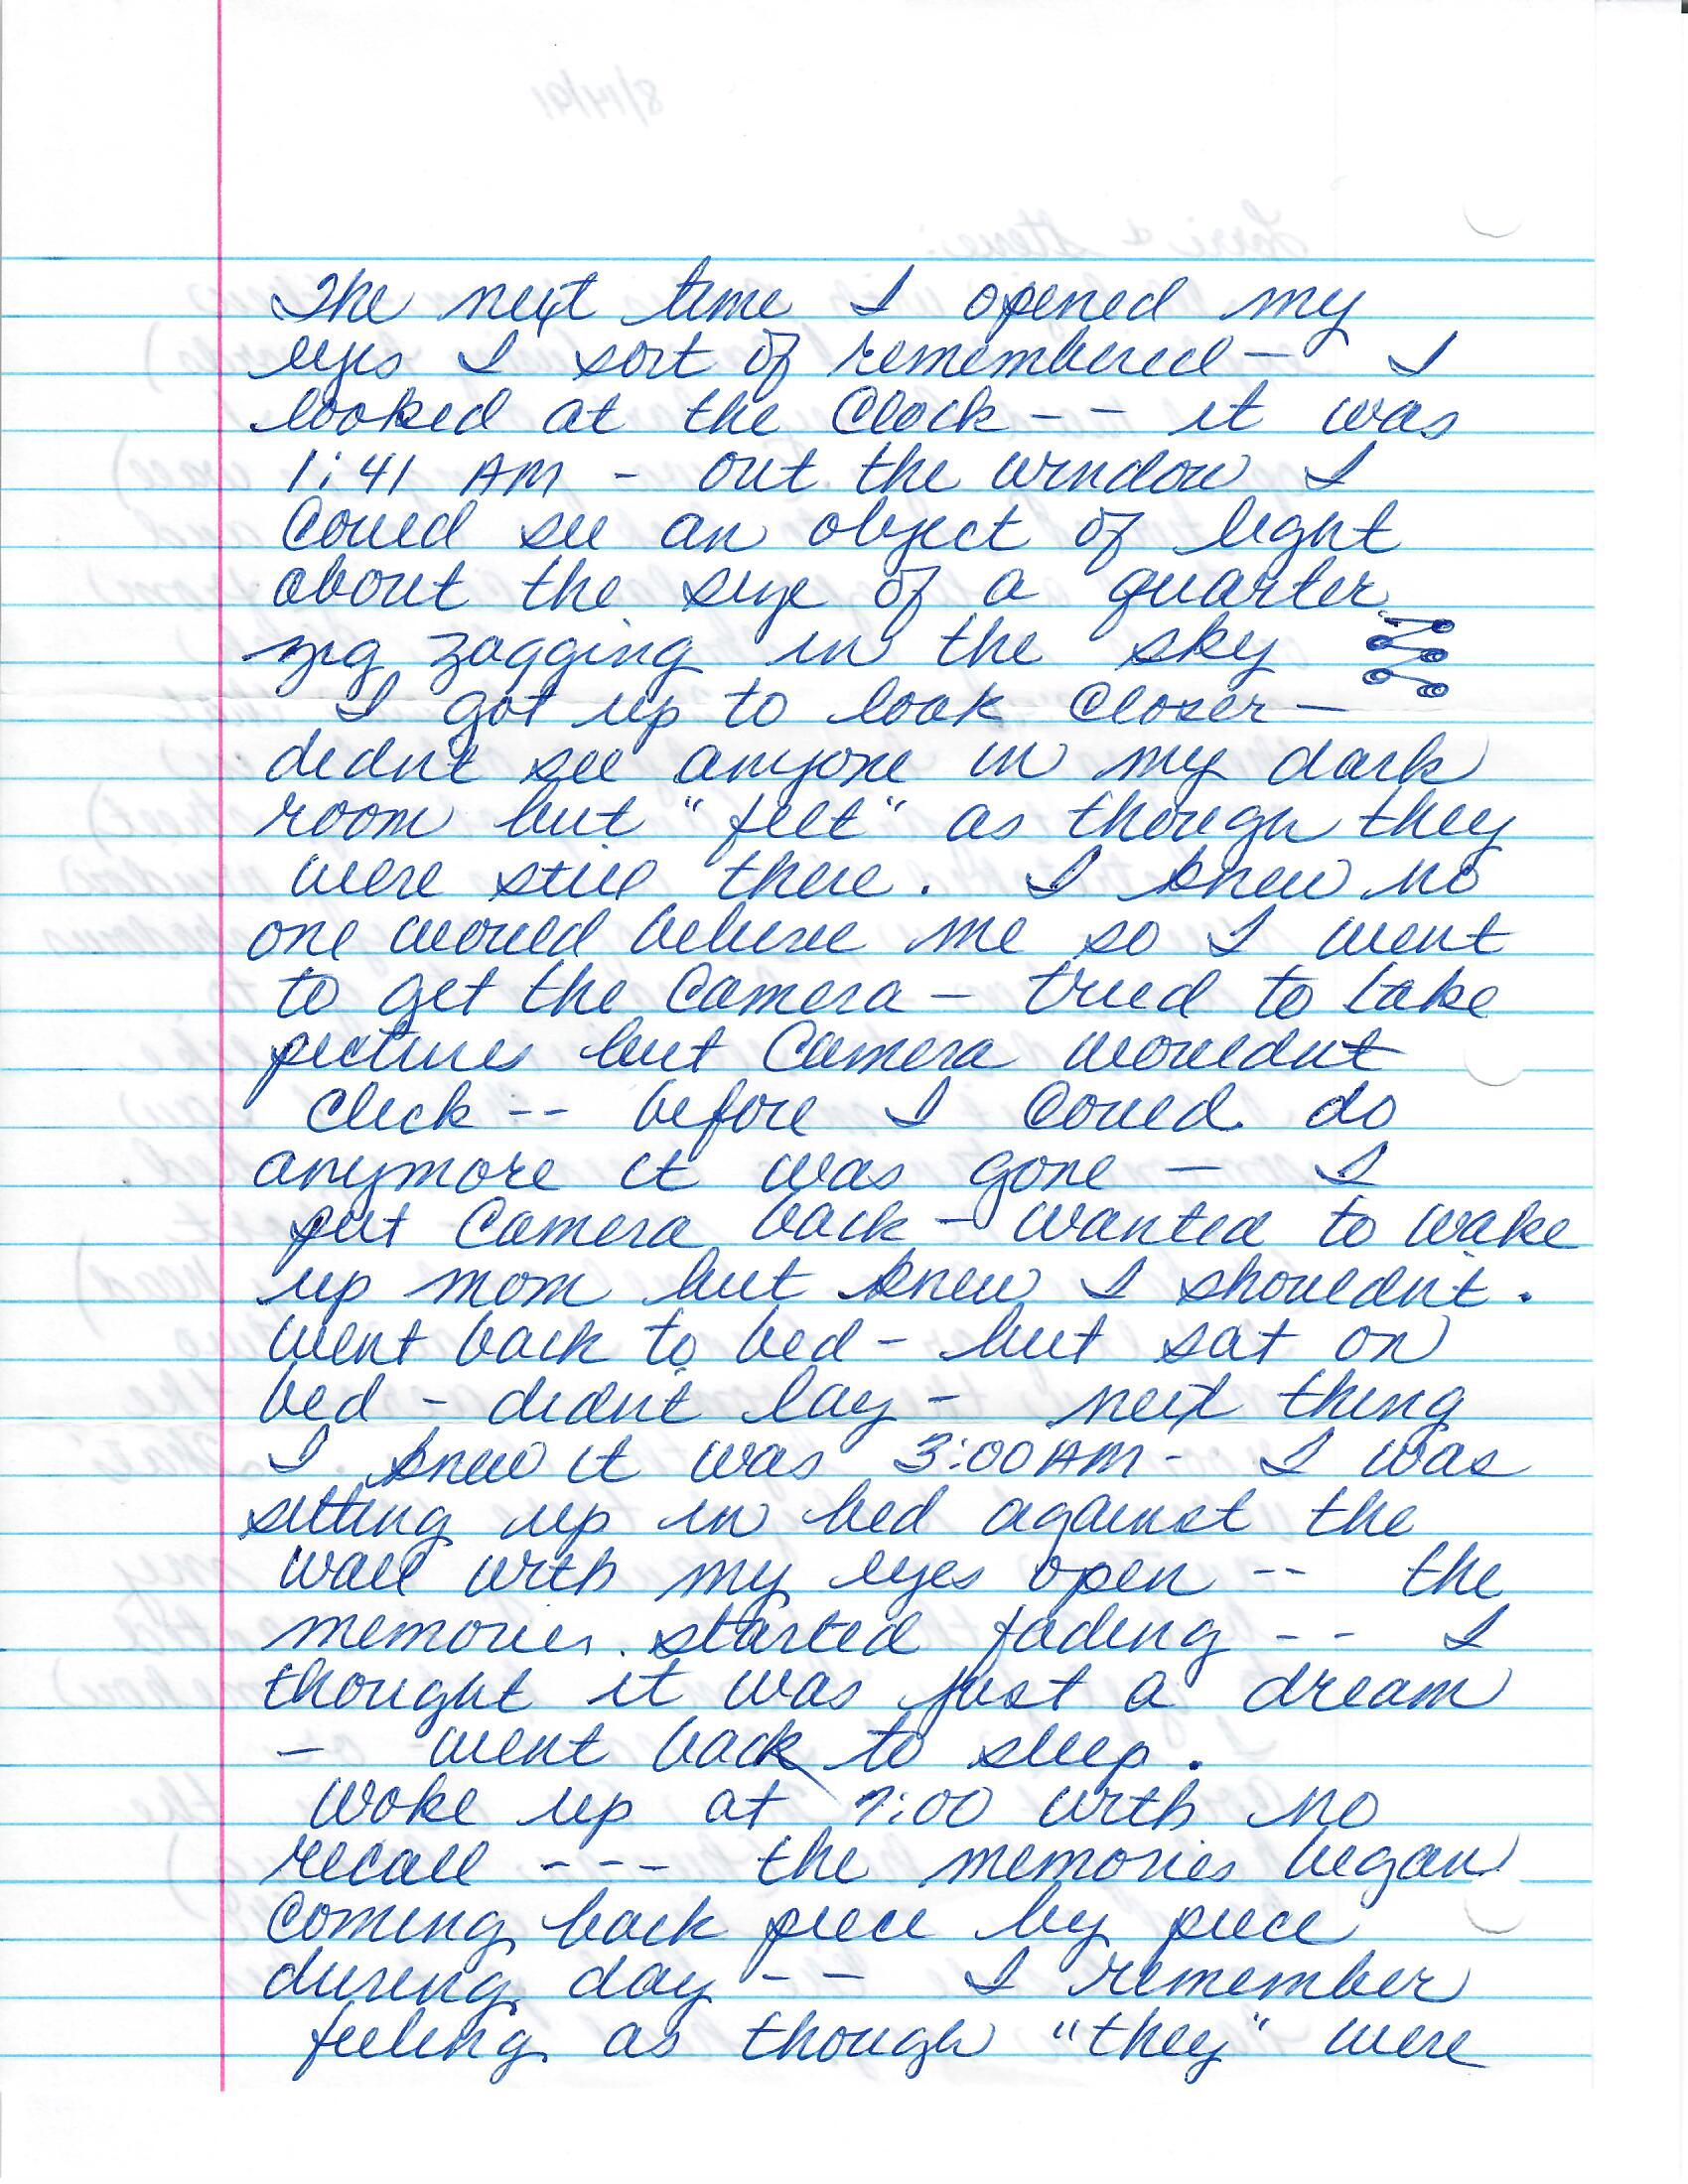 The next time I opened my
eyes I sort of remembered — I
looked at the clock -- it was
1:41 AM - out the window I
could see an object of light
about the size of a quarter
zig zagging in the sky
I got up to look closer —
didnt see anyone in my dark
room but "felt" as though they
were still there. I knew no
one would believe me so I went
to get the camera — tried to take
pictures but camera wouldnt
click -- before I could do
anymore it was gone — I
put camera back - wanted to wake
up mom but knew I shouldn't.
Went back to bed - but sat on
bed - didn't lay - next thing
I knew it was 3:00 AM - I was
sitting up in bed against the
wall with my eyes open -- the
memories started fading -- I
thought it was just a dream
— went back to sleep.
Woke up at 7:00 with no
recall --- the memories began
coming back piece by piece
during day -- I remember
feeling as though "they" were